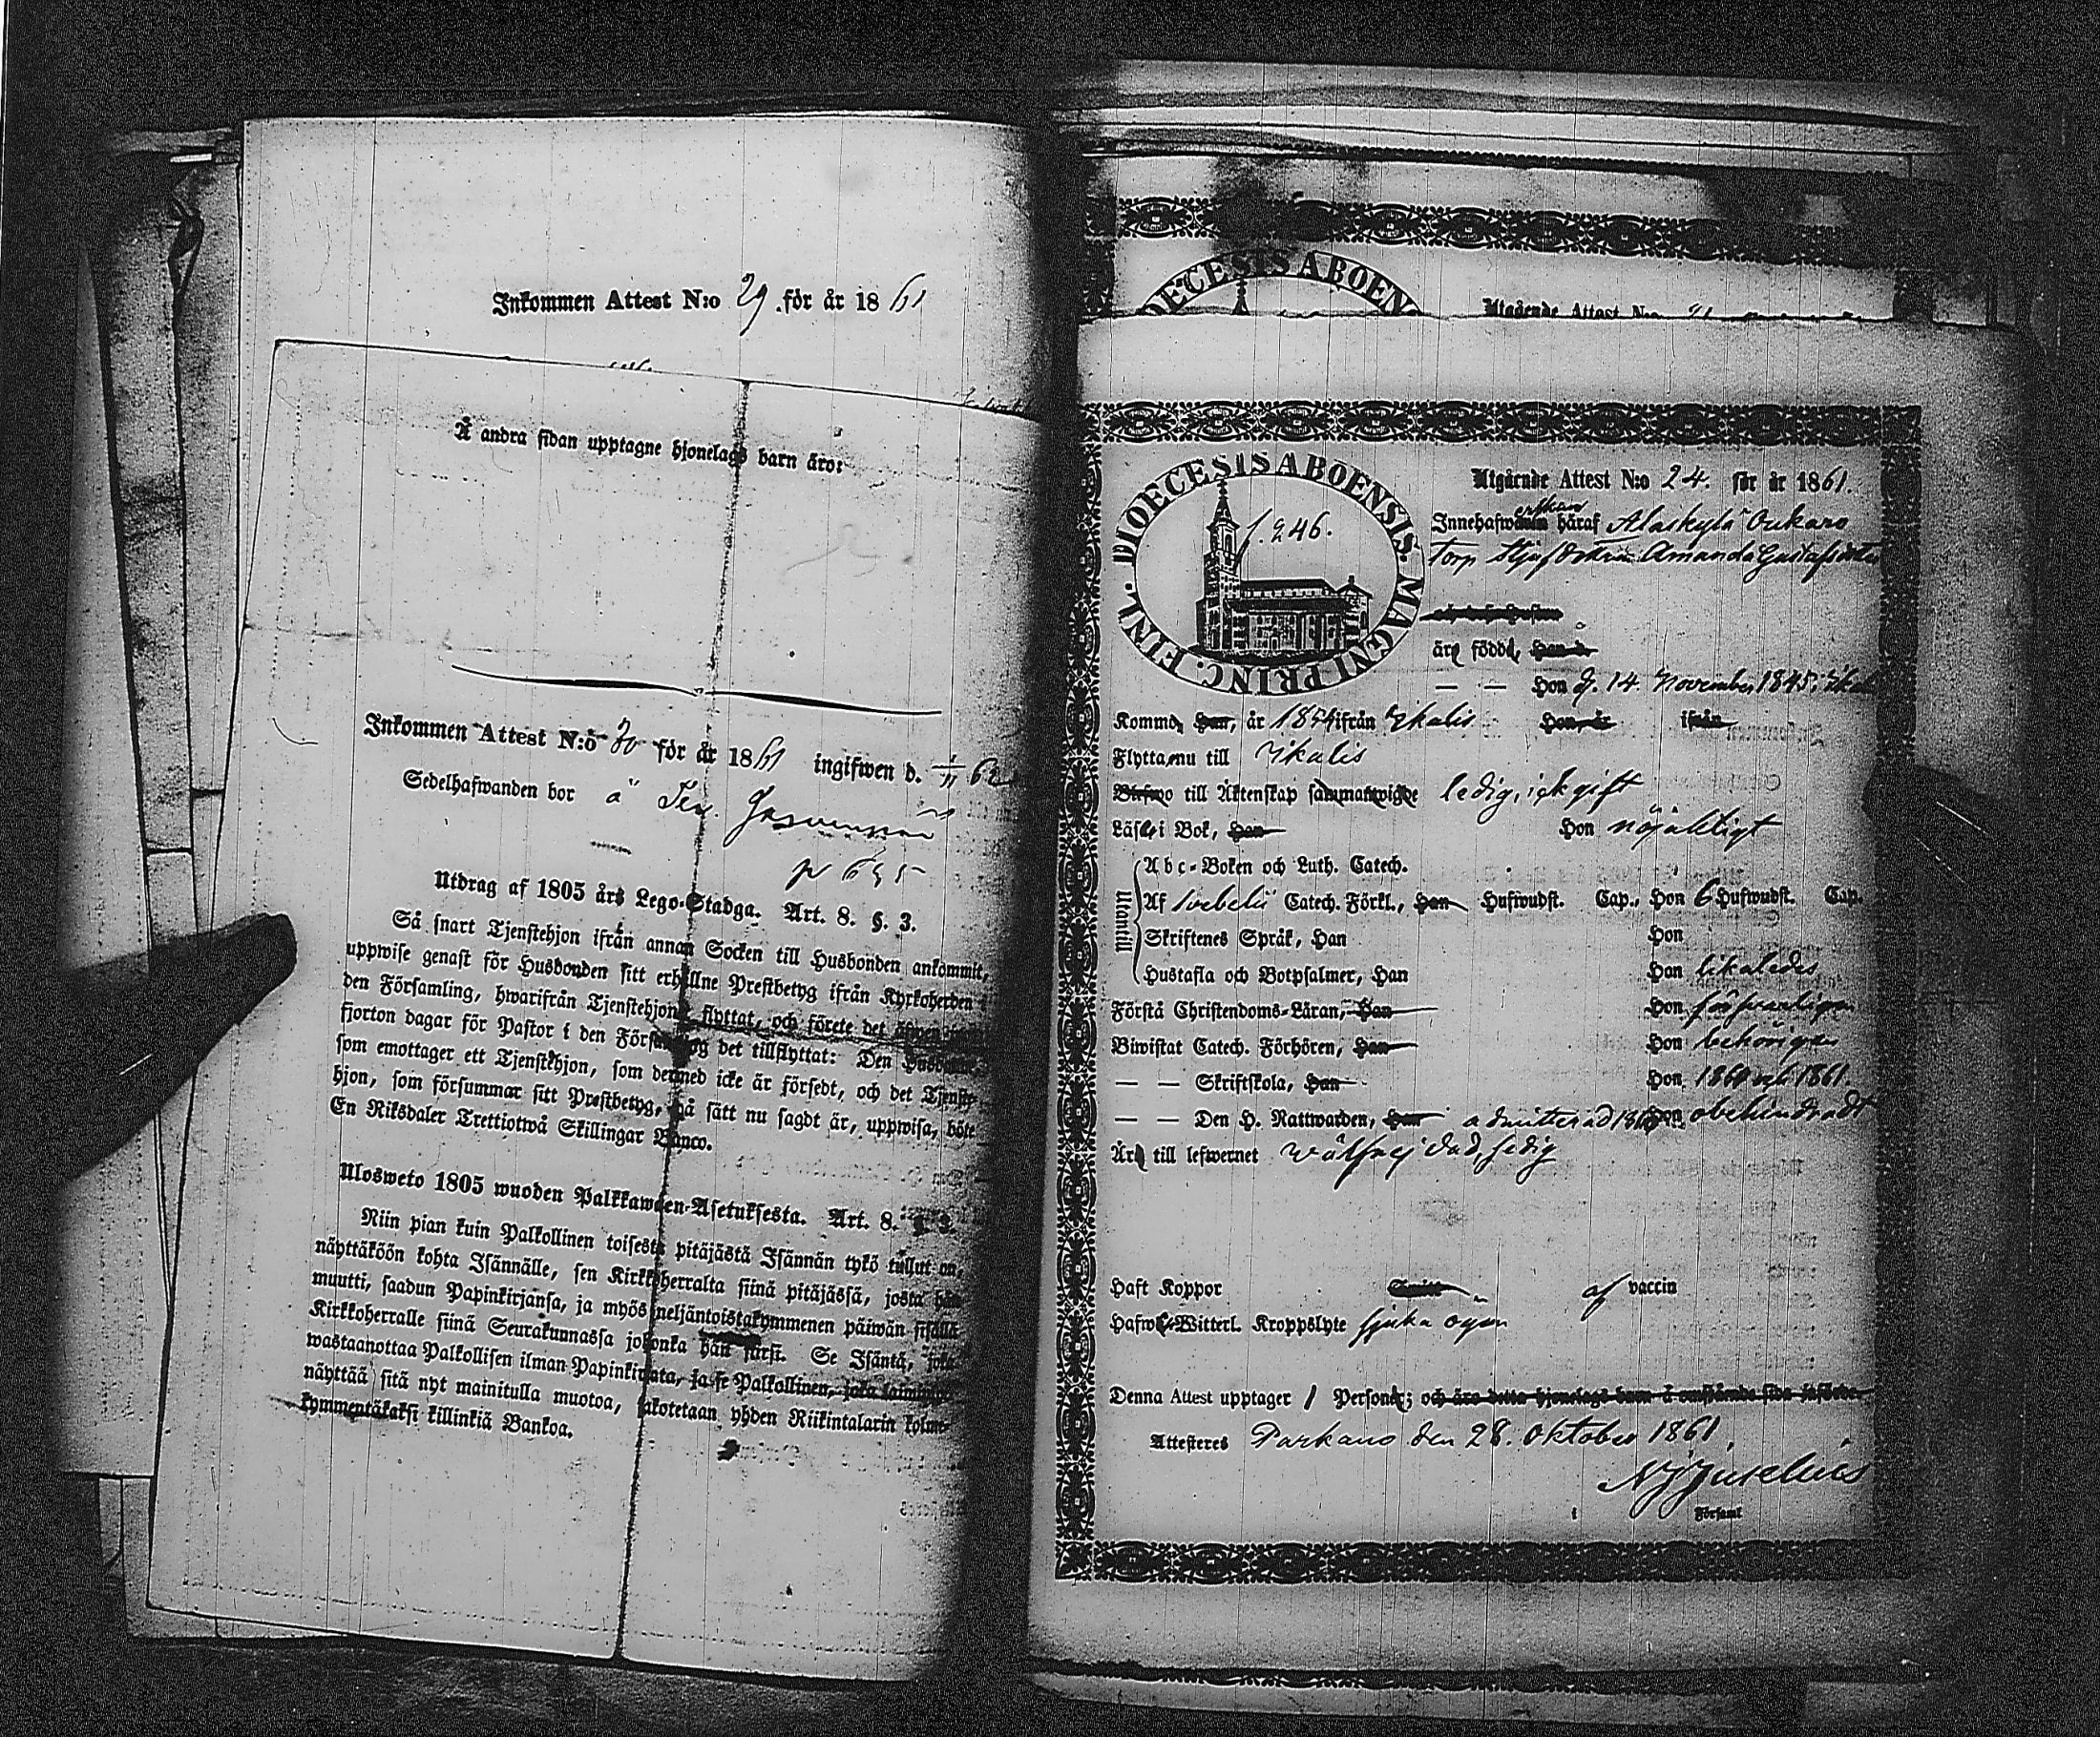 Inkommen Attest N:o 29 för år 1861
Å andra sidan upptagne hjonelags barn äro:
Inkommen Attest N:o 30 för år 1861 ingifwen d.
Sedelhafwanden bor å
p 635
Utdrag af 1805 års Lego-Stadga. Art. 8. §. 3.
Så snart Tjenstehjon ifrån annan Socken till Husbonden ankommit,
uppwise genast för Husbonden sitt erhållne Prestbetyg ifrån Kyrkoherden i
den Församling, hwarifrån Tjenstehjonet flyttat, och förete det äfwen
fjorton dagar för Pastor i den Församling det tillflyttat: Den Husbonde
som emottager ett Tjenstehjon, som dermed icke är försedt, och det Tjenste-
hjon, som försummar sitt Prestbetyg, på sätt nu sagdt är, uppwisa, böte
En Riksdaler Trettiotwå Skillingar Banco.
Ulosweto 1805 wuoden Palkkawäen-Asetuksesta. Art. 8. §. 3.
Niin pian kuin Palkollinen toisesta pitäjästä Isännän tykö tullut on,
näyttäköön kohta Isännälle, sen Kirkkoherralta siinä pitäjässä, josta hän
muutti, saadun Papinkirjansa, ja myös neljäntoistakymmenen päiwän sisällä
Kirkkoherralle siinä Seurakunnassa johonka hän siirsi. Se Isäntä, joka
wastaanottaa Palkollisen ilman Papinkirjata, ja se Palkollinen, joka laiminlyö
näyttää sitä nyt mainitulla muotoa, sakotetaan yhden Riikintalarin kolme-
kymmentäkaksi killinkiä Bankoa.
DIOECESIS ABOEN
Utgående Attest N:o
DIOECESIS ABOENSIS. MAGNI PRINC. FINL.
f. 246.
Utgående Attest N:o 24. för år 1861.
Innehafwerskan häraf Alaskylä Oukaro
Torp Amanda Gustafsdotter
äro födde, Han d.
— — Hon d. 14. November 1845 i Ikalis
Kommo Han, år 1854 ifrån Ikalis Hon, år ifrån
Flytta nu till Ikalis
till Äktenskap sammanwigde ledig, ogift
Läser i Bok, Han Hon nöjaktigt
Utantill
Abc-Boken och Luth. Catech.
Af Svebelii Catech. Förkl., Han Hufwudst. Cap., Hon 6 Hufwudst. Cap.
Skriftenes Språk, Han Hon
Hustafla och Botpsalmer, Han Hon likaledes
Förstå Christendoms-Läran, Han Hon försvarligen
Biwistat Catech. Förhören, Han Hon behörigen
— — Skriftskola, Han Hon 1860 och 1861
— — Den H. Nattwarden, Han admitterad Hon obehindradt
Äro till lefwernet wälfrejdad, ledig
Haft Koppor Smitt af vaccin
Hafwa Witterl. Kroppslyte sjuka ögon
Denna Attest upptager 1 Personer; och äro detta hjonelags barn å omstående sida införde.
Attesteres Parkano den 28. Oktober 1861.
i Församl